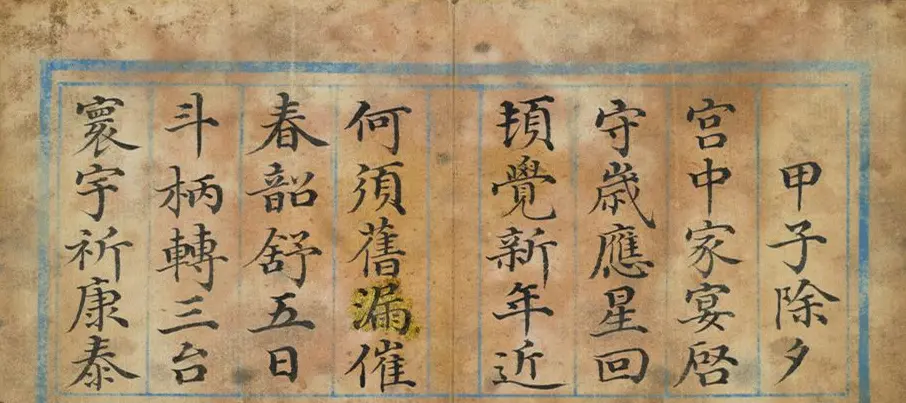 甲子除夕
宫中家宴啓
守歲應星回
頓覺新年近
何須舊漏催
春韶舒五日
斗柄轉三台
寰宇祈康泰